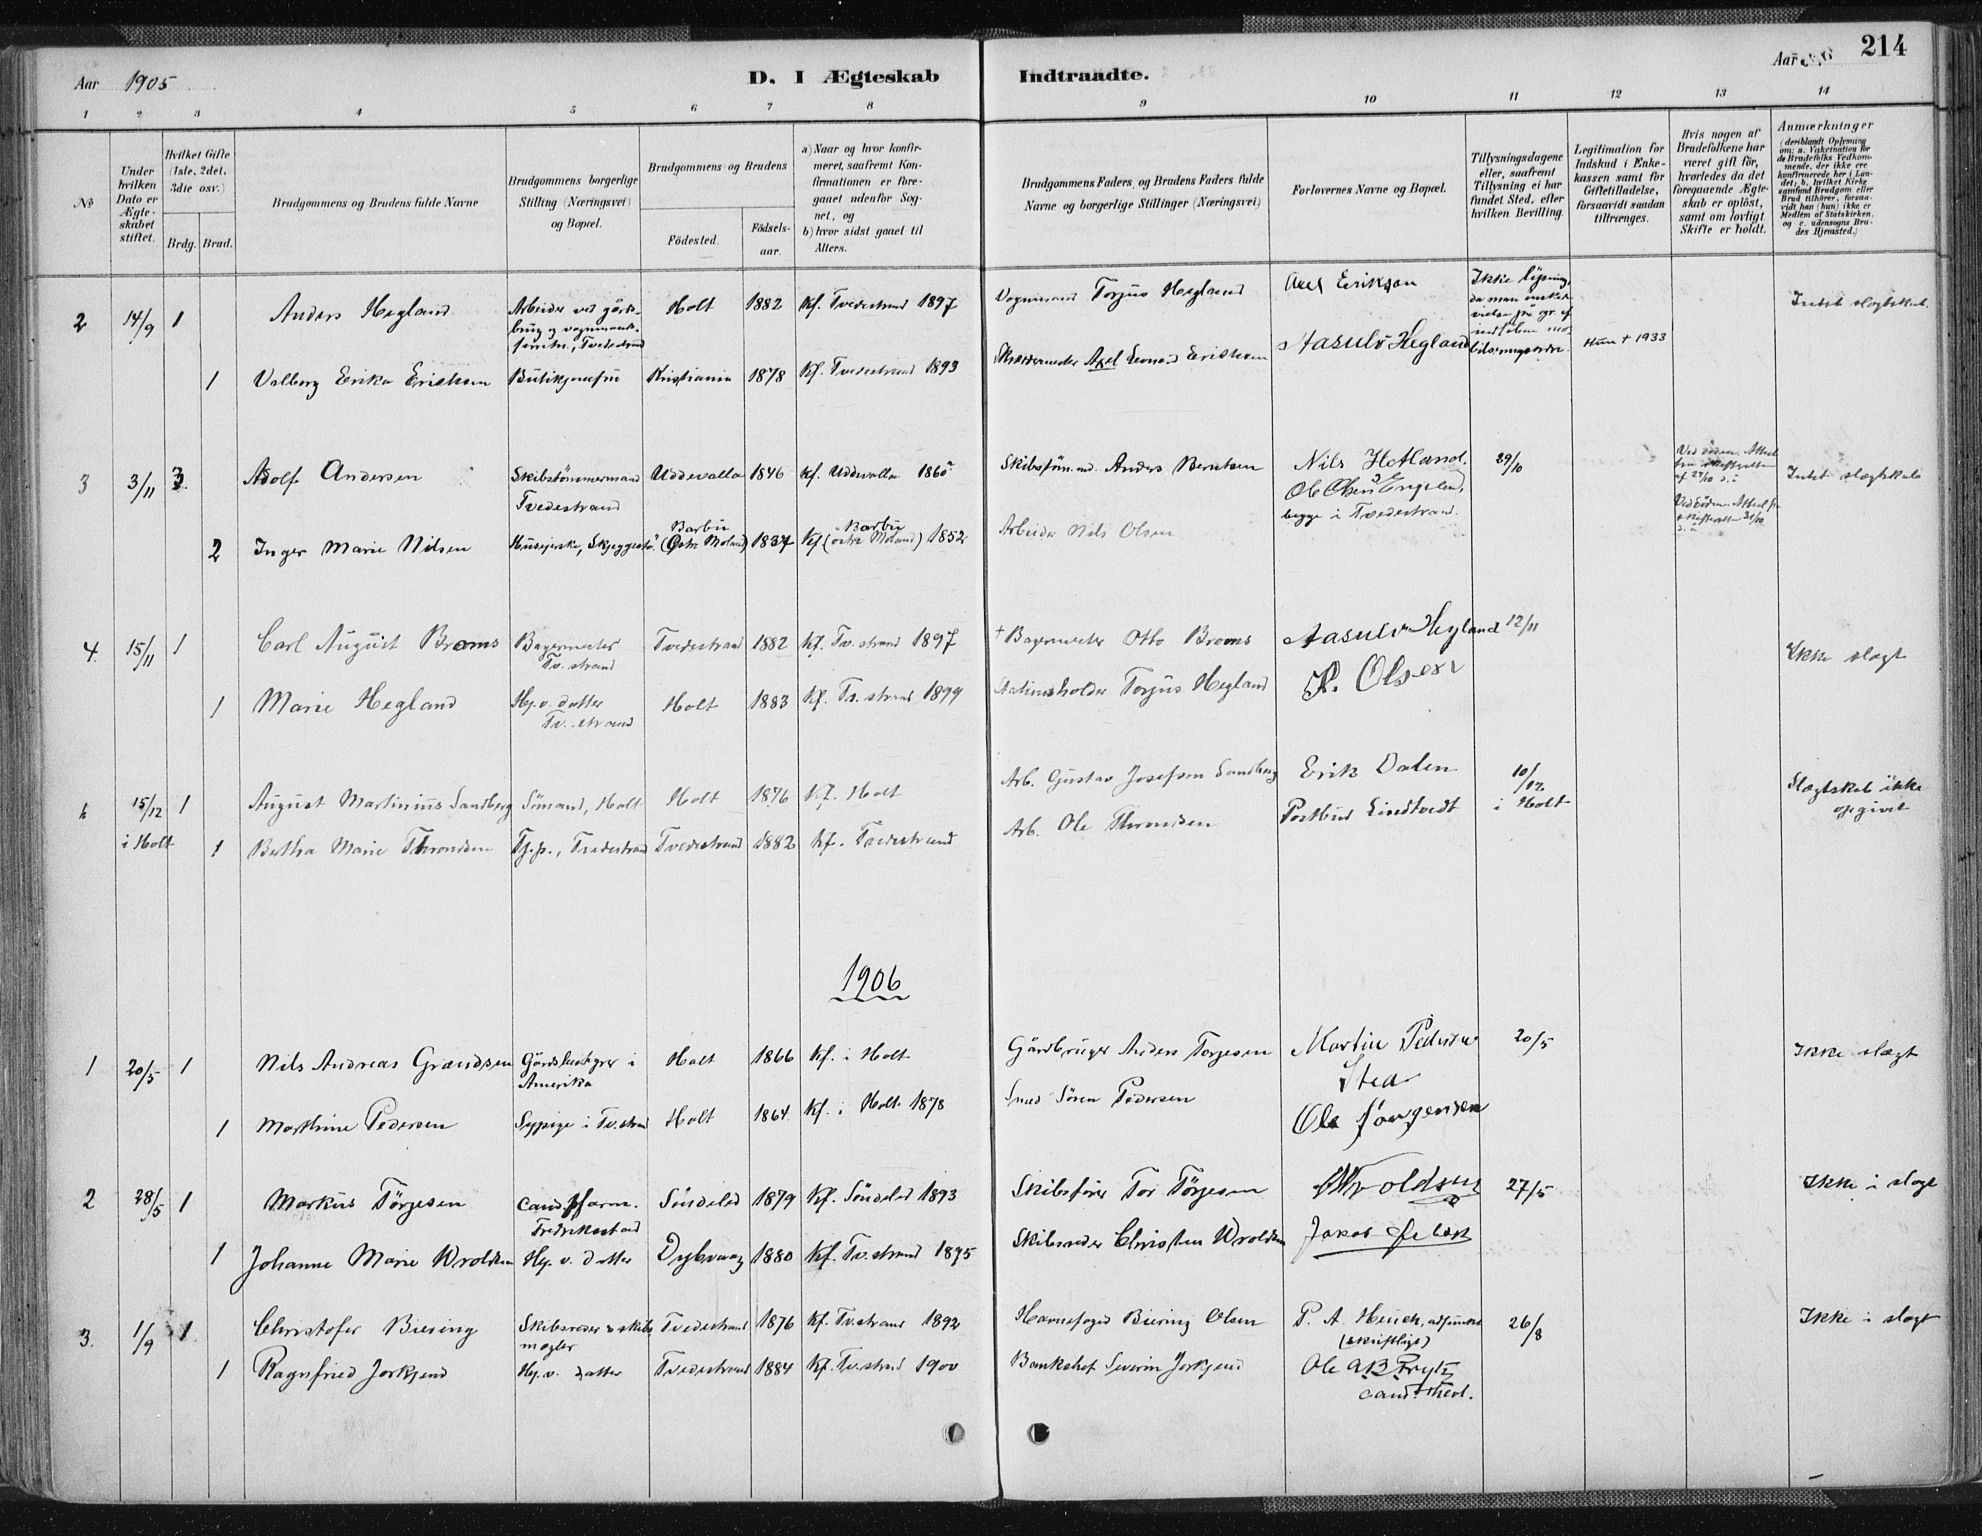 Aar 1905
D. I Ægteskab Indtraadte.
Aar 1906 214
1 2 3 4 5 6 7 8 9 10 11 12 13 14
No
Under hvilken Dato er Ægteskabet stiftet.
Hvilket Gifte (1ste, 2det, 3die osv.)
Brdg. Brud.
Brudgommens og Brudens fulde Navne
Brudgommens borgerlige Stilling (Næringsvei) og Bopæl.
Brudgommens og Brudens
Födested. Födselsaar.
a) Naar og hvor konfirmeret, saafremt Konfirmationen er foregaaet udenfor Sognet, og
b) hvor sidst gaaet til Alters.
Brudgommens Faders og Brudens Faders fulde Navne og borgerlige Stillinger (Næringsvei)
Forlovernes Navne og Bopæl.
Tillysningsdagene eller, saafremt Tillysning ei har fundet Sted, efter hvilken Bevilling.
Legitimation for Indskud i Enkekassen samt for Giftetilladelse, forsaavidt saadan tiltrænges.
Hvis nogen af Brudefolkene har været gift för, hvorledes da det foregaaende Ægteskab er oplöst, samt om lovligt Skifte er holdt.
Anmærkninger (deriblandt Oplysning om: a. Vakcination for de Brudefolks Vedkommende, der ikke ere konfirmerede her i Landet; b. hvilket Kirkesamfund Brudgom eller Brud tilhörer, forsaavidt han (hun) ikke er Medlem af Statskirken, og c. udensogns Brudes Hjemsted.)
2 14/9 1 Anders Hegland Arbeider ved gårdsbrug og vognmandsforretn., Tvedestrand Holt 1882 Kf. Tvedestrand 1897 Vognmand Torjus Hegland Axel Erikson Ikke lysning, da man ønsket vielse Intet slægtskab.
1 Valborg Erika Erichsen Butikjomfru Kristiania 1878 Kf. Tvedestrand 1893 Skræddermester Axel Leonard Erichsen Aasulv Hegland Hun † 1933
3 3/11 3. Adolf Andersen Skibstömmermand Tvedestrand Uddevalla 1846 Kf. Uddevalla 1860 Skibstöm.md. Anders Berntsen Nils Hetland. Ole Olsen Engelen, begge i Tvedestrand. 29/10 Intet slægtskab
2 Inger Marie Nilsen Husejerske, Barbu (Östre Moland) 1837 Kf. Barbu (östre Moland) 1852 Arbeider Nils Olsen
4. 15/11 1 Carl August Broms Bagermester Tv.strand Tvedestrand 1882 Kf. Tv.strand 1897 † Bagermester Otto Broms Aasulv Hegland 12/11 Ikke slægt
1 Marie Hegland Hj.v. datter Tv.strand Holt 1883 Kf. Tv.strand 1899 Stationsholder Torjus Hegland P. Olsen
15/12 i Holt 1 August Martinius Sandberg Sömand, Holt Holt 1876 Kf. Holt Arb. Gustav Josefsen Sandberg Erik Dalen 10/12 i Holt Slægtskab ikke opgivet
1 Bertha Marie Throndsen Tj.p., Tvedestrand Tvedestrand 1882 Kf. Tvedestrand Arb. Ole Throndsen Postbud Lindtvedt
1906
1 20/5 1 Nils Andreas Grandsen Gårdbruger i Amerika Holt 1866 Kf. i Holt Gårdbruger Anders Torjesen Martin Pedersen 20/5 Ikke slægt
1 Marthine Pedersen Sypige i Tv.strand Holt 1864 Kf. i Holt 1878 Smed Sören Pedersen Ole Jörgensen
2 28/5 1 Markus Törjesen cand. pharm. Fredriksstad Söndeled 1879 Kf. Söndeled 1893 Skibsfører Tor Törjesen Wroldsen 27/5 Ikke i slægt
1 Johanne Marie Wroldsen Hj. v. datter Dybvaag 1880 Kf. Tv.strand 1895 Skibsreder Christen Wroldsen Jakob
3. 1/9 1 Christofer Biering Skibsreder & skibsmægler Tvedestrand 1876 Kf. Tv.strand 1892 Havnefoged Biering Olsen P. A. Heuch, adjunkt (skriftligt) 26/8 Ikke i slægt
1 Ragnfried Jorkjend Hj.v. datter Tvedestrand 1884 Kf. Tv.strand 1900 Bankchef Severin Jorkjend Ole A B Prytz cand. theol.